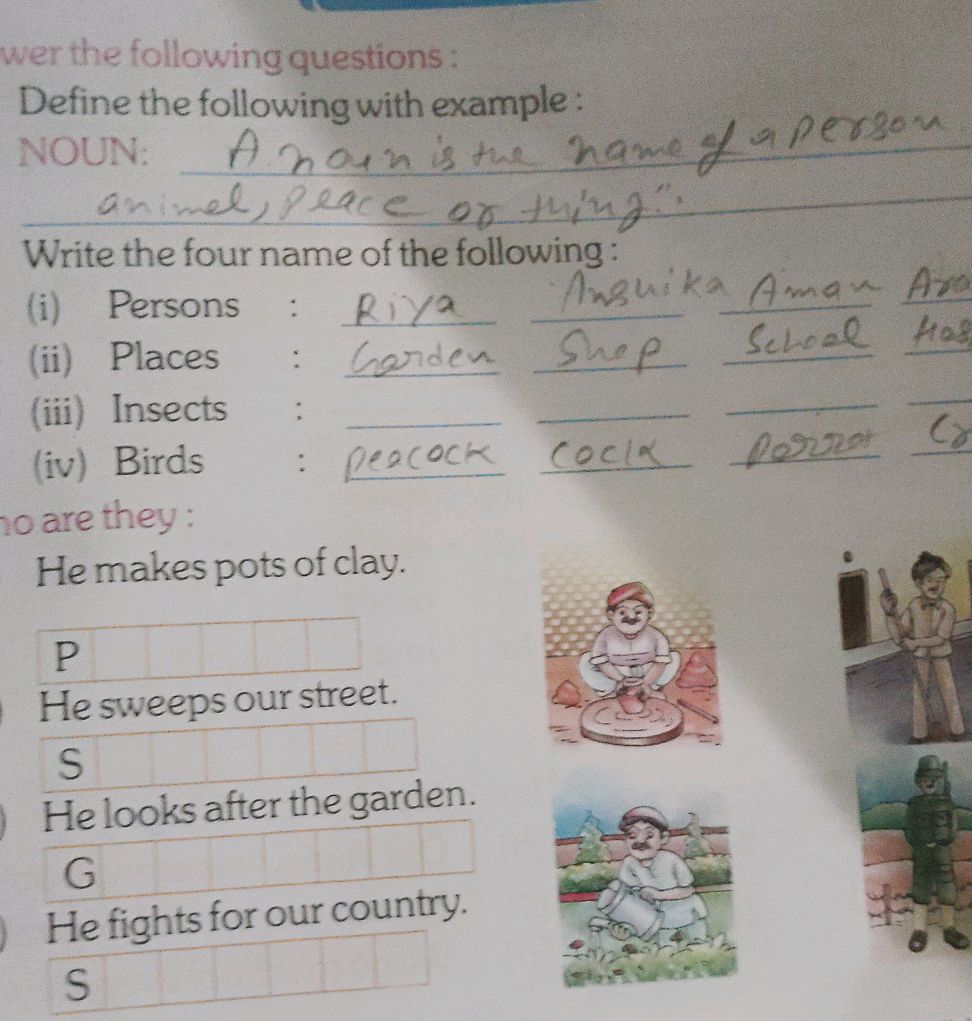 wer the following questions :
Define the following with example :
NOUN: A noun is the name of a person
animel, Peace or thing".
Write the four name of the following :
(i) Persons : Riya Anshika Aman Ara
(ii) Places : Garden Shop School Hos
(iii) Insects :
(iv) Birds : peacock cock Parrot Cr
ho are they :
He makes pots of clay.
P
He sweeps our street.
S
He looks after the garden.
G
He fights for our country.
S